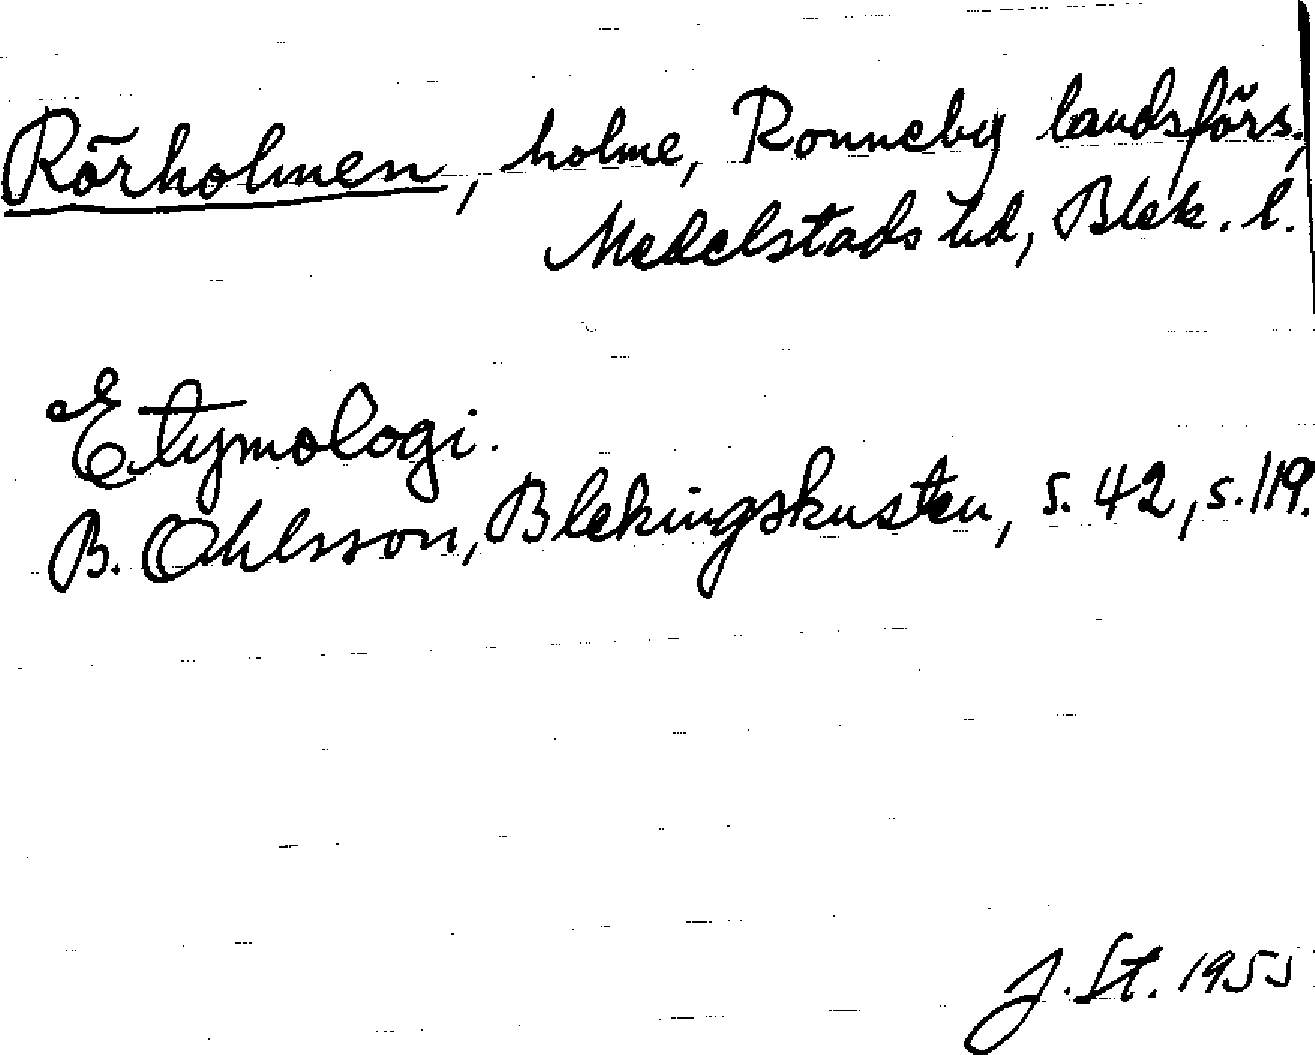 Rörholmen, holme, Ronneby landsförs.,
Medelstads hd, Blek. l.
Etymologi.
B. Ohlsson, Blekingskusten, s. 42, s. 119.
J. St. 1955